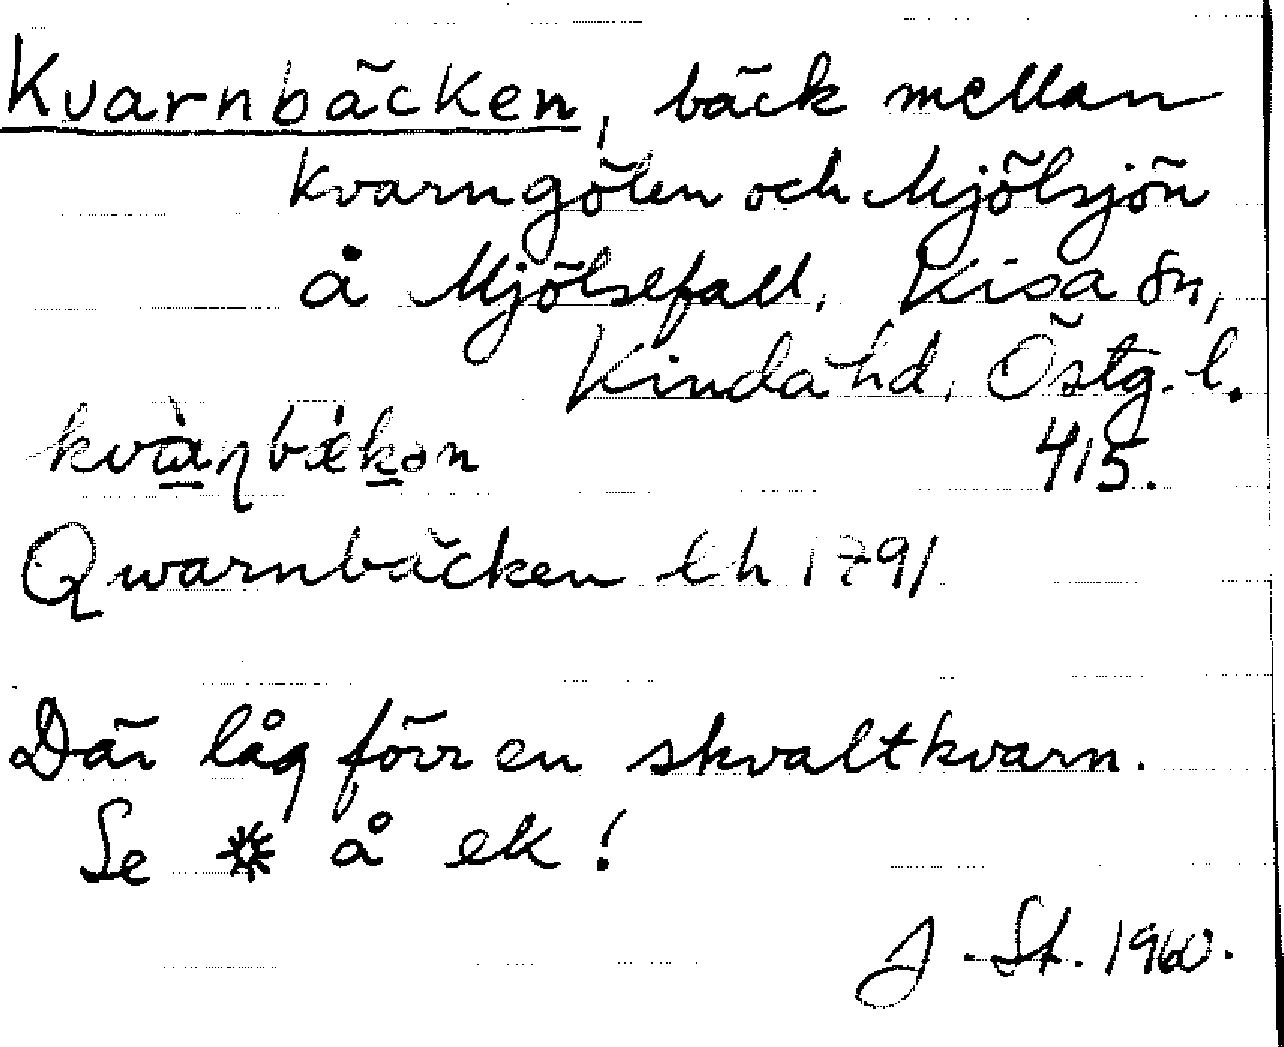 Kvarnbäcken, bäck mellan
Kvarngölen och Mjölsjön
å Mjölsefall. Kisa sn,
Kinda hd, Östg. l.
kvàṇbækən 415.
Qwarnbäcken lh 1791
Där låg förr en skvaltkvarn.
Se * å ek!
J. St. 1960.